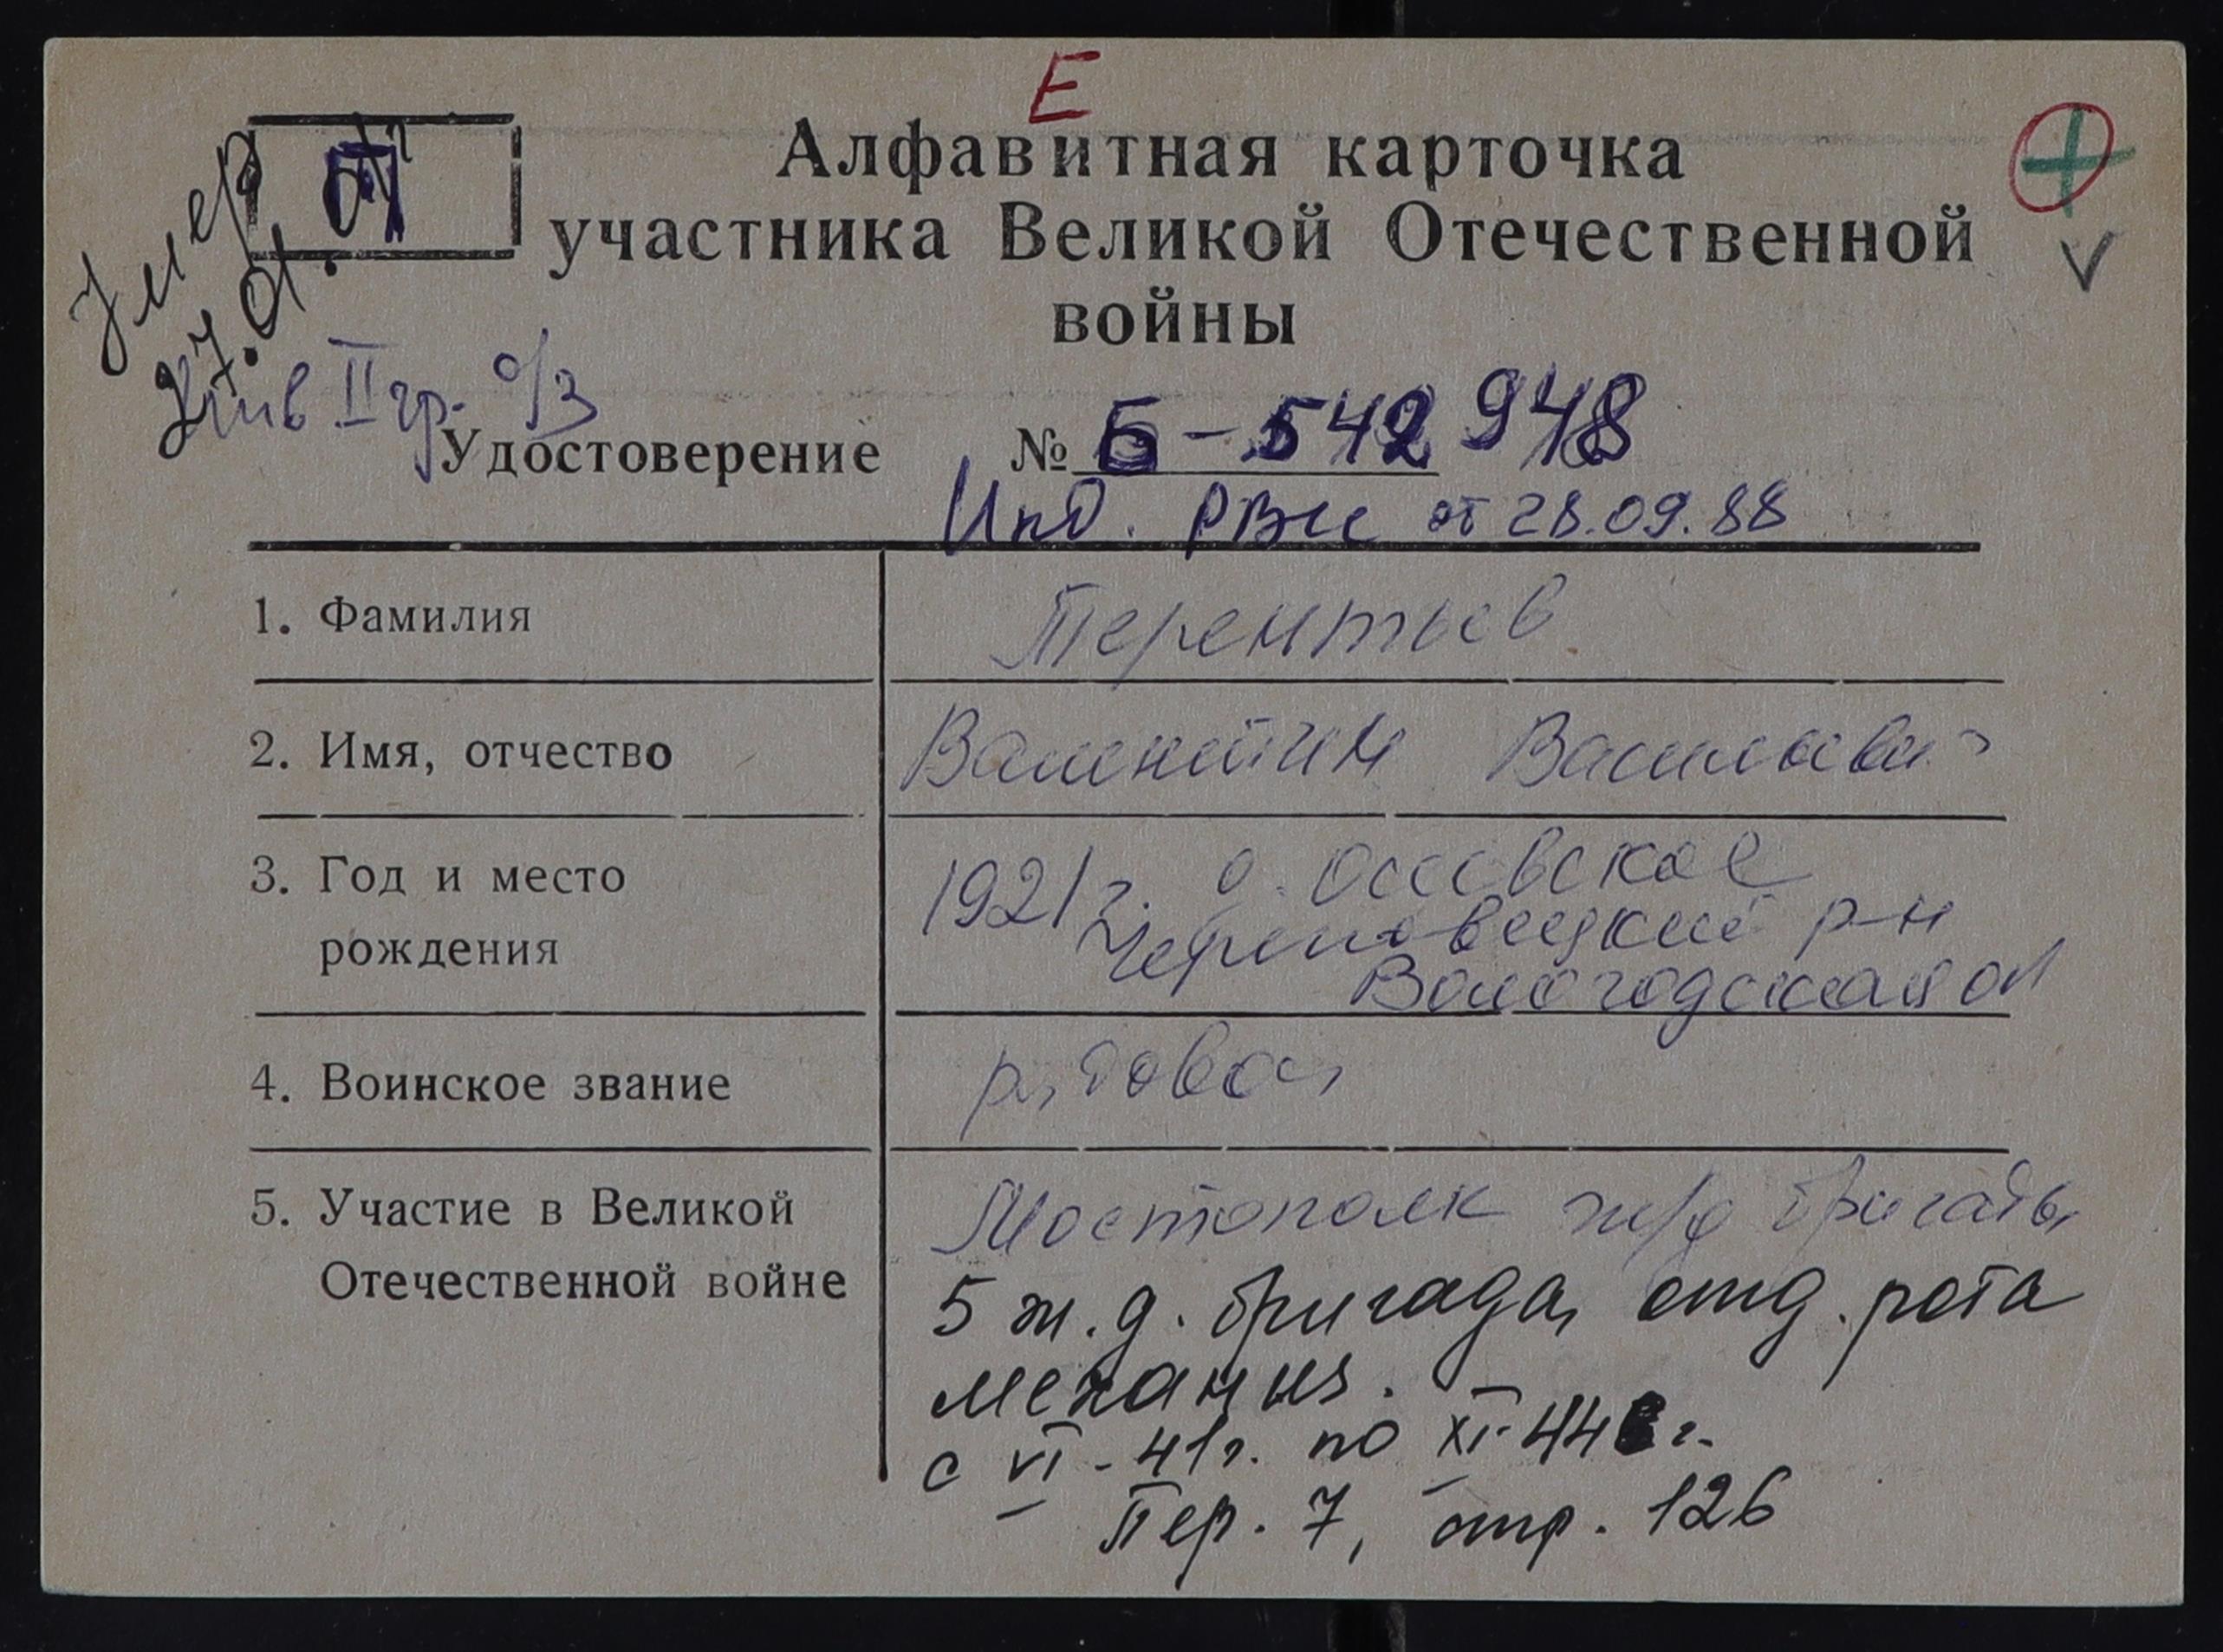 Е
Т
Алфавитная карточка
участника Великой Отечественной
войны
Умер
27.01.
Инв II гр. о/з
Удостоверение № Б-542948
РВК от 28.09.88
1. Фамилия Терентьев
2. Имя, отчество Валентин Васильеви
3. Год и место 1921 г. Оссовское
рождения Череповецкий р-н
Вологодская
4. Воинское звание рядовой
5. Участие в Великой Мостополк ж/д бригады
Отечественной войне 5 ж.д. бригада, отд. рота
механиз.
с VI-41г. по XI-44 г.
Пер. 7, стр. 126